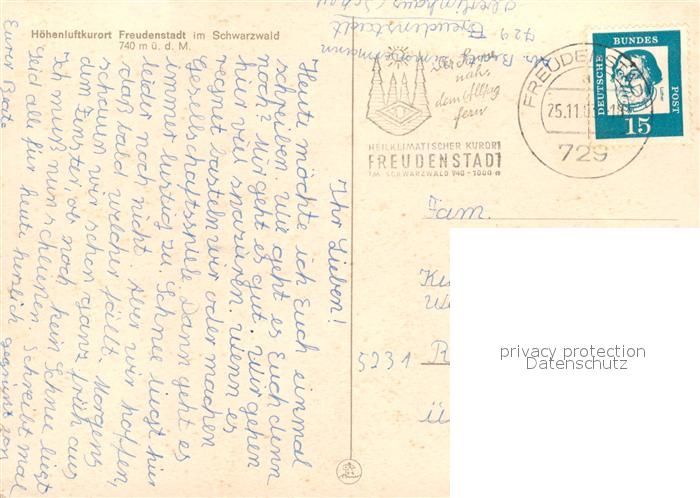 Höhenluftkurort Freudenstadt im Schwarzwald
740 m ü. d. M.
Ihr Lieben!
Heute möchte ich Euch einmal
schreiben. Wie geht es Euch denn
noch? Mir geht es gut. Wir gehen
hier viel spazieren. Wenn es
regnet basteln wir oder machen
Gesellschaftsspiele. Dann geht es
immer lustig zu. Schnee liegt hier
leider noch nicht. Aber wir hoffen,
daß bald welcher fällt. Morgens
schauen wir schon ganz früh aus
dem Fenster, ob noch kein Schnee liegt
Ich muß nun schließen. Schreibt mal
Seid alle für heute herzlich gegrüßt von
Eurer Beate
Abs. Beate
729 Freudenstadt
der Sonne
nah,
dem Alltag
fern
HEILKLIMATISCHER KURORT
FREUDENSTADT
IM SCHWARZWALD 740-1000 m
FREUDENSTADT
25.11.
729
DEUTSCHE
BUNDES
POST
15
Fam.
5231
privacy protection
Datenschutz